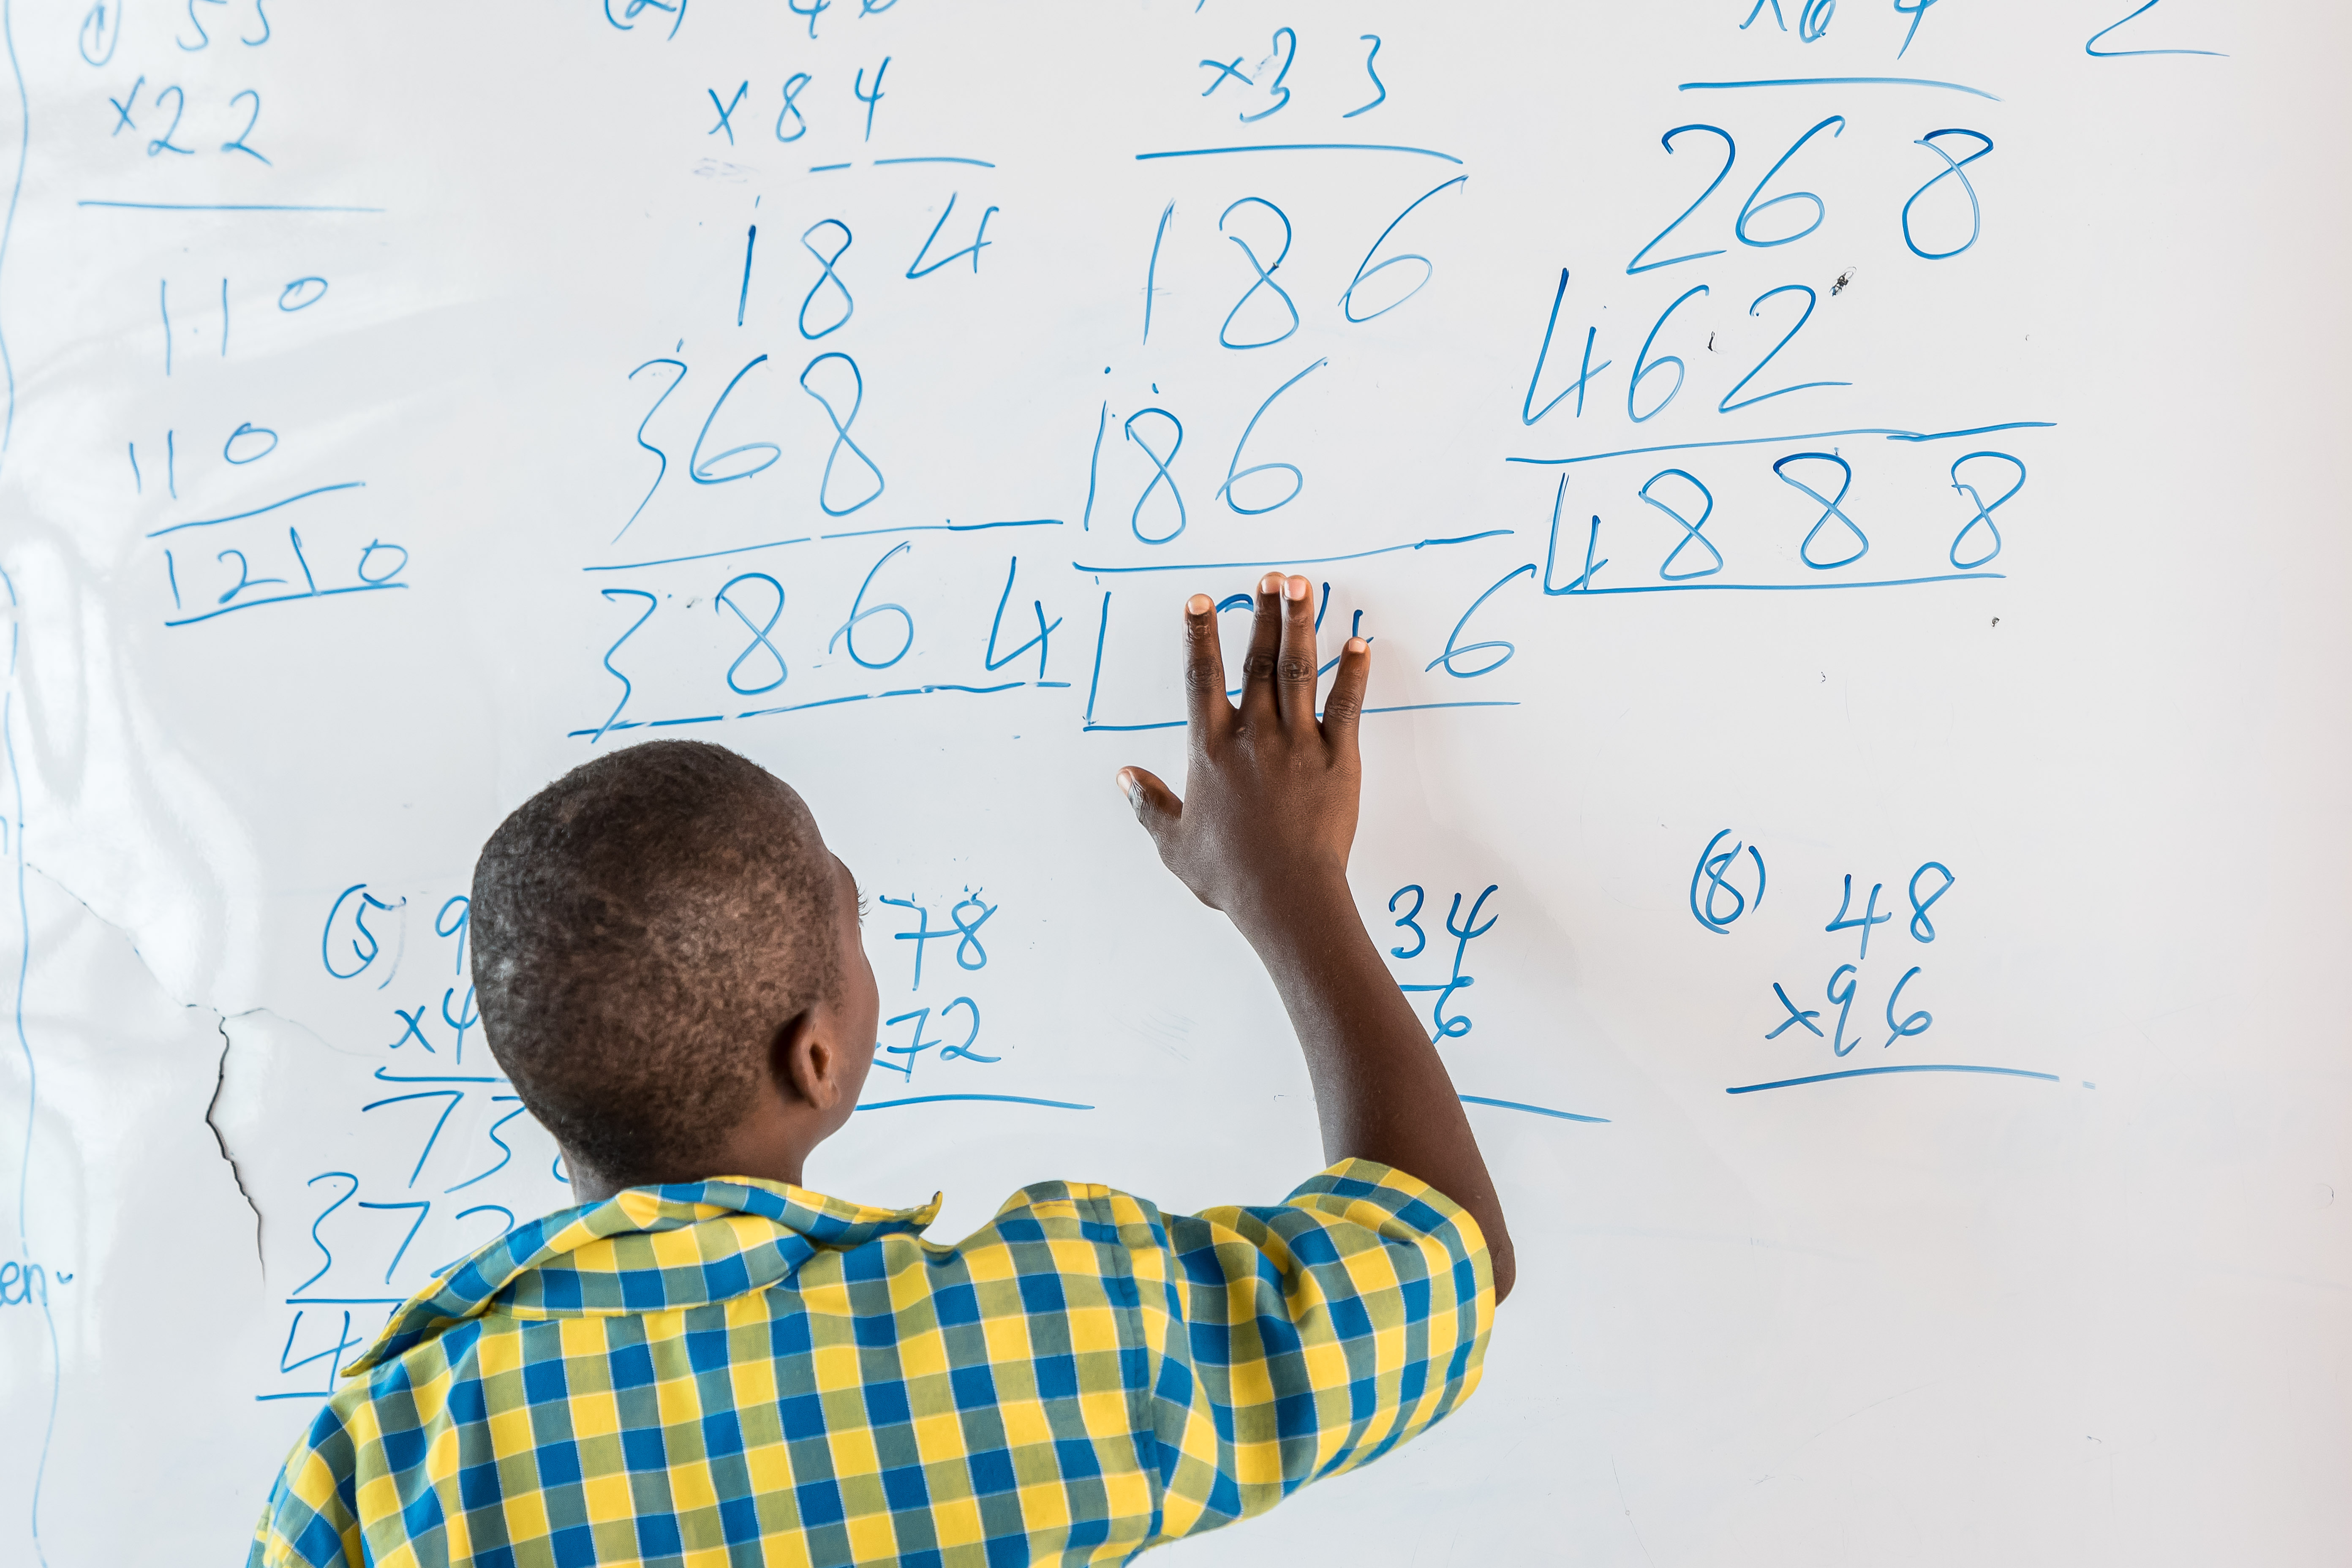 ① 55
×22
110
110
1210
(2) 46
×84
184
368
3864
×33
186
186
6
×64
268
462
4888
2
(5) 9
×4
73
372
4
78
72
34
6
(8) 48
×96